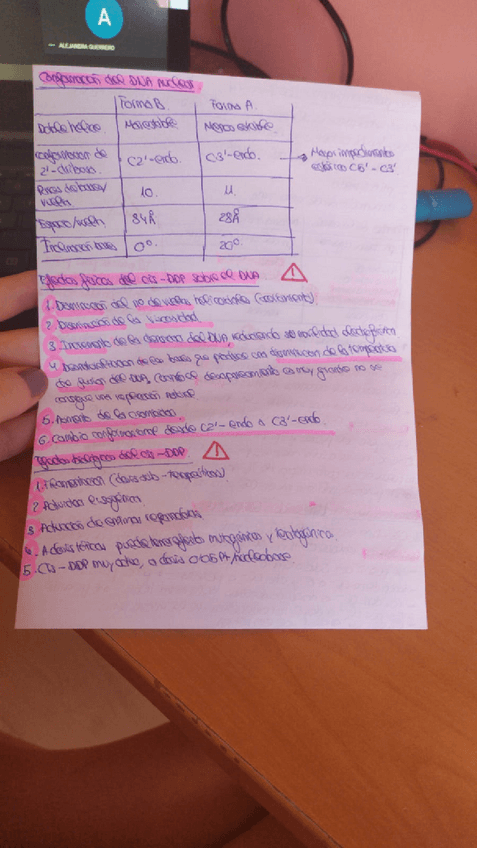 A
ALEJANDRA GUERRERO
Conformación del DNA nuclear
Forma B. Forma A.
Doble hélice Más estable Menos estable.
conformación de 2'-dribosa C2'-endo. C3'-endo. → Mayor impedimento estérico C5'-C3'
Pares de bases/vuelta 10. 11.
Espacio/vuelta 34Å 28Å
Inclinación bases 0º. 20º.
Efectos físicos del cis-DDP sobre el DNA
1. Disminución del nº de vueltas
2. Disminución de la viscosidad
3. Incremento de la densidad del DNA, reduciendo su movilidad electroforética
4. de las bases que produce una disminución de la temperatura
de fusión del DNA, cuando el desapareamiento es muy grande no se
consigue una reparación natural
5. Aumento de la
6. Cambio conformacional desde C2'-endo a C3'-endo.
Efectos biológicos del cis-DDP
1. Filamentación (dosis sub-terapéuticas)
2. Actividad lisogénica
3. Activación de enzimas reparadoras
4. A dosis tóxicas puede tener efecto mutagénico y teratogénico.
5. Cis-DDP muy activo, a dosis 0'05 Pt/nucleobase